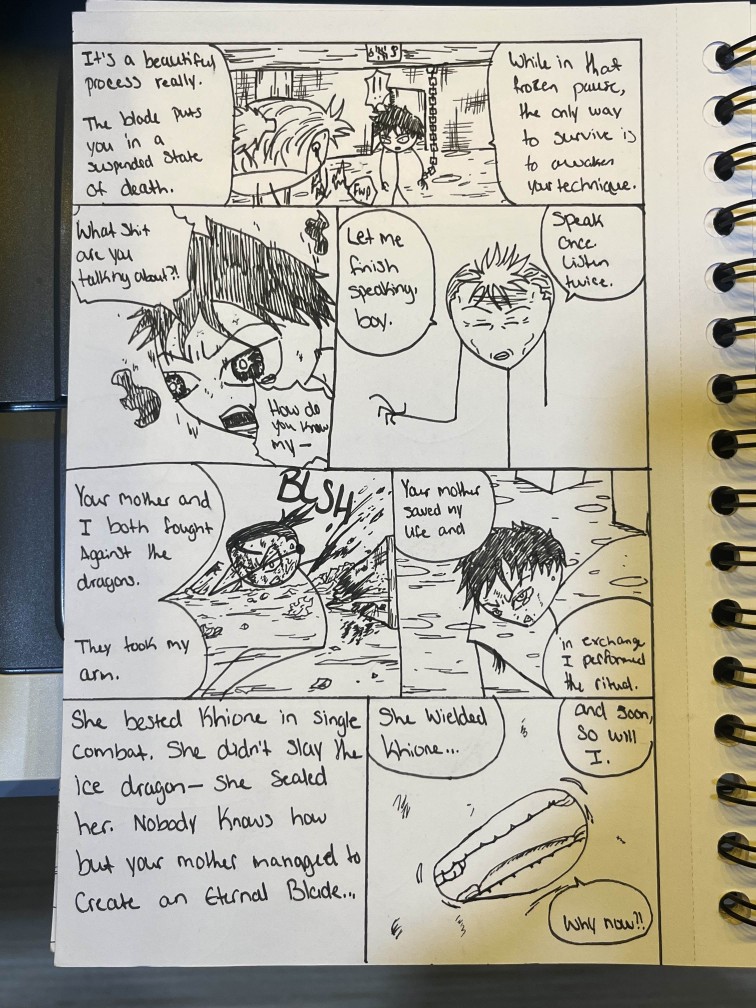 It's a beautiful
process really.
The blade puts
you in a
suspended state
of death.
While in that
frozen pause,
the only way
to survive is
to awaken
your technique.
FWP
What shit
are you
talking about?!
How do
you know
my—
Let me
finish
speaking,
boy.
Speak
once
listen
twice.
Your mother and
I both fought
Against the
dragons.
They took my
arm.
BLSH
Your mother
saved my
life and
in exchange
I performed
the ritual.
She bested Khione in single
combat. She didn't slay the
ice dragon— she sealed
her. Nobody knows how
but your mother managed to
create an Eternal Blade...
She wielded
Khione...
and soon,
so will
I.
Why now?!